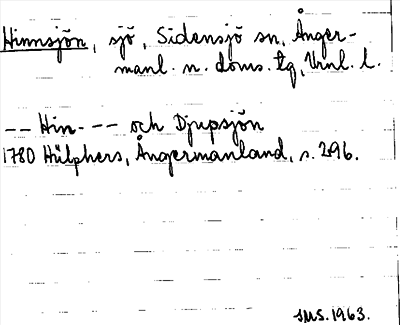 Hinnsjön, sjö, Sidensjö sn, Ånger-
manl. n. doms. tg, Vrnl. l.
-- Hin- -- och Djupsjön
1780 Hülphers, Ångermanland, s. 296.
SMS. 1963.